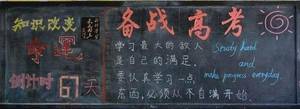 知识改变
学笔
倒计时67天
备战高考
学习最大的敌人
是自己的满足，
要认真学习一点
东西，必须从不自满开始。
Study hard
and
make progress everyday.